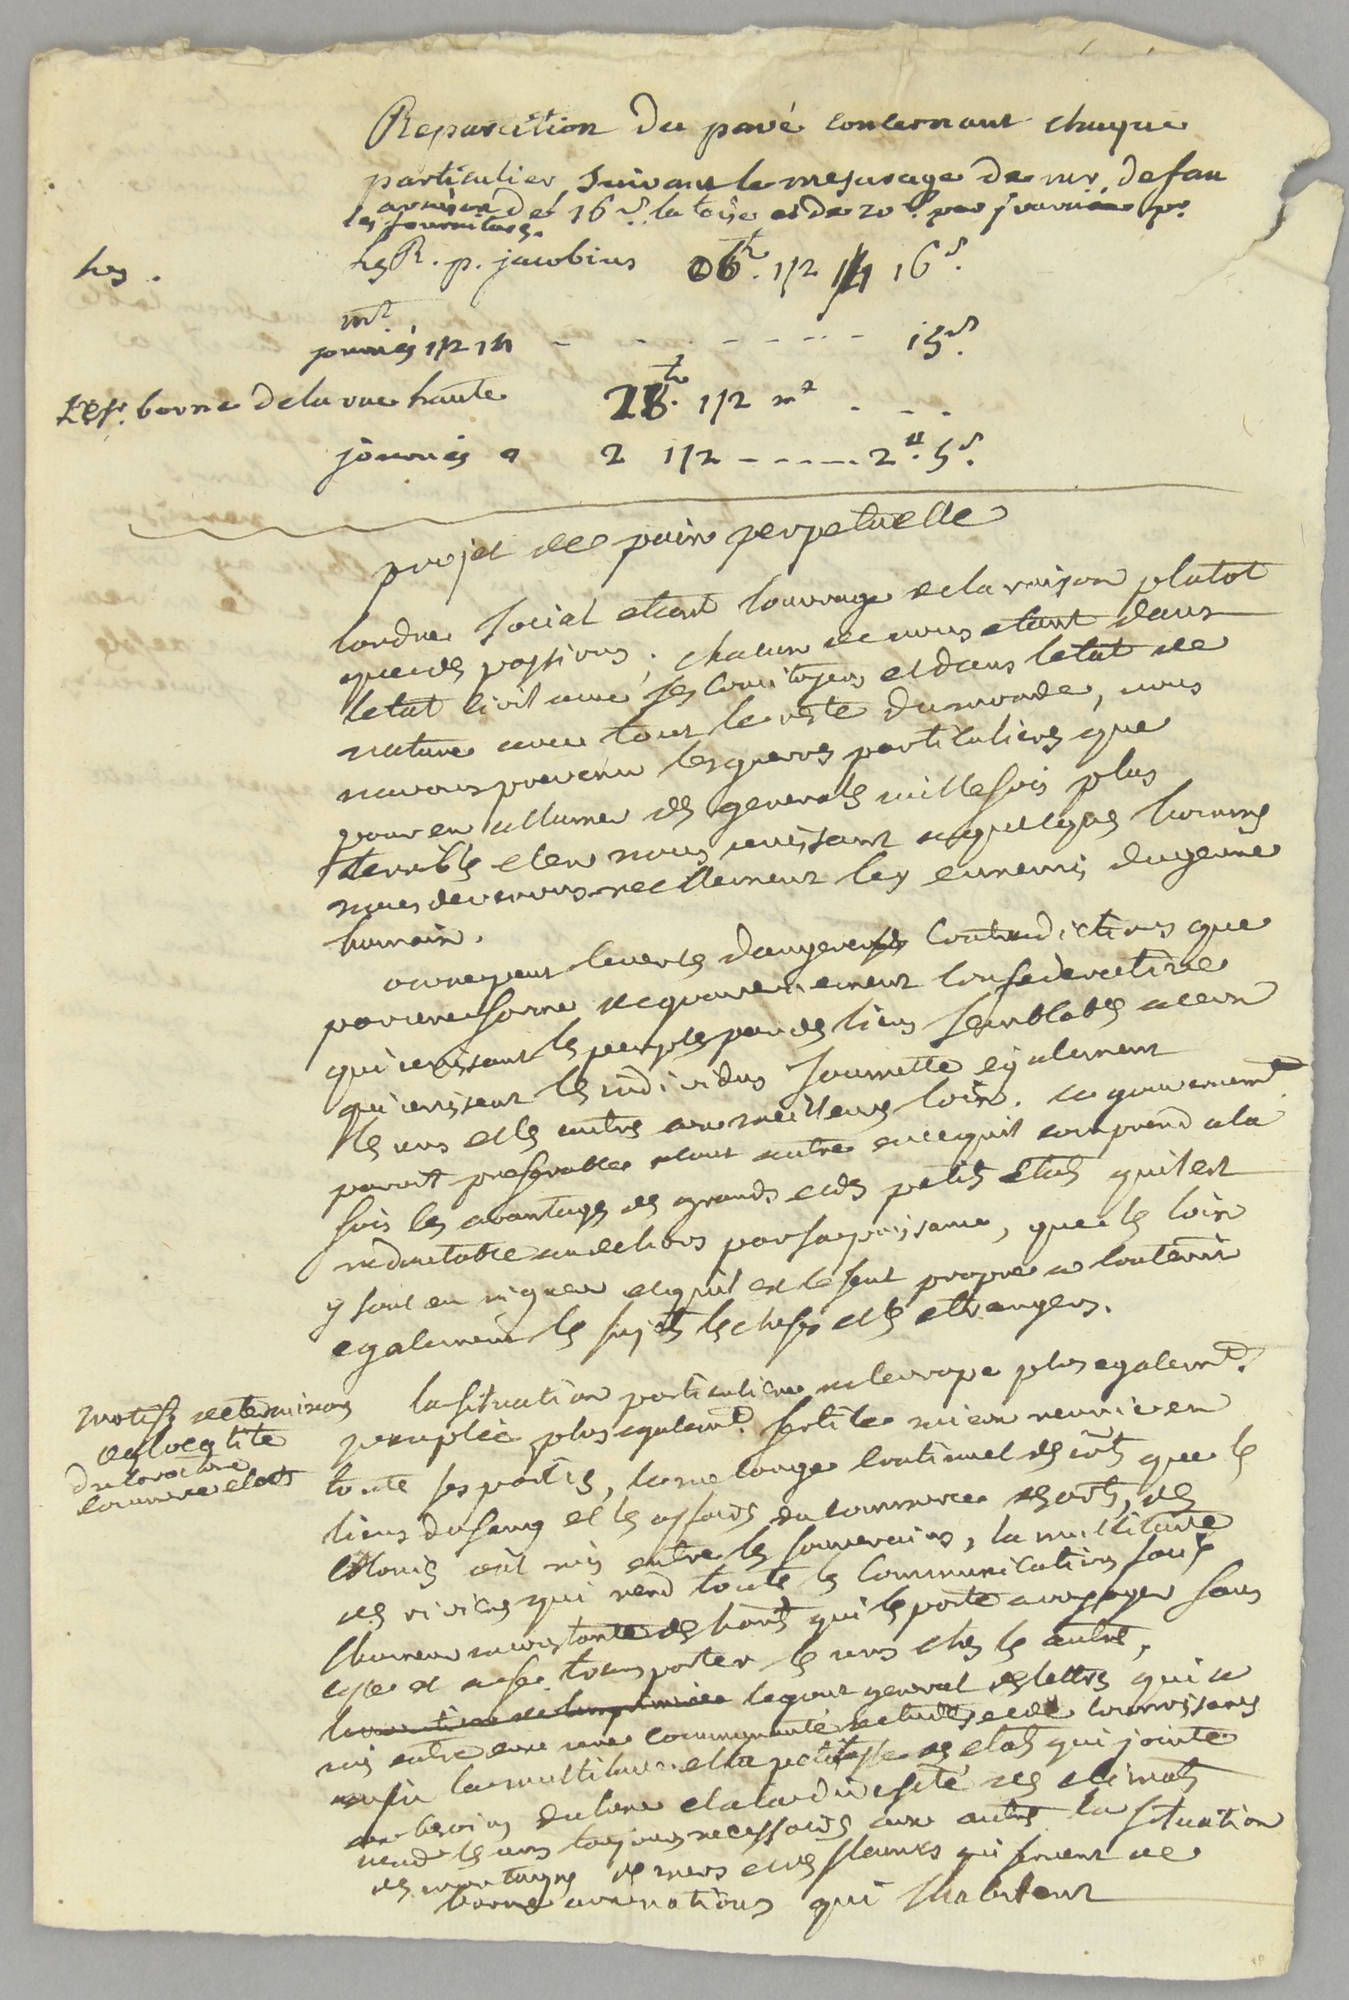 Reparition du pavé concernant chaque
particulier suivant le mesurage de mr defau
arrivée de 16 s. la toise et de 20 s. par journée pr
les fournitures.
les R. p. jacobins 06 t. 1/2 16 s.
hes.
m2
journés 1/2 - - - - - - - 15 s.
borne de la rue haute 28 t. 1/2 m2 - - -
journés a 2 1/2 - - - - - 2 ". 5 s.
projet de paix perpetuelle
lordre social etant louvrage de la raison plutot
que des passions. chacun de nous etant dans
letat civil avec ses concitoyens et dans letat de
nature avec tout le reste du monde, nous
navons prevenu les guerres particulieres que
pour en allumer de generales mille fois plus
terribles et en nous unissant a quelques hommes
nous devenons reellement les ennemis du genre
humain.
on ne peut lever ces dangereuses contradictions que
par une forme de gouvernement confederative
qui unissant les peuples par des liens semblables a ceux
qui unissent les individus soumette egalement
les uns et les autres aux meilleures loix. ce gouvernemt
paroit preferable a tout autre en ce quil comprend a la
fois les avantages des grands et des petits etats quil est
redoutable au dehors par sa puissance, que les loix
y sont en vigueur et quil est le seul propre a contenir
egalement les sujets les chefs et les etrangers.
motifs determinans
de localité
du territoire
commerce et arts
la situation particuliere de leurope plus egalemt
peuplée plus egalemt fertile mieux reunie en
toute ses parties, le melange continuel des interets que les
liens du sang et les affaires du commerce des arts, des
colonies ont mis entre les souverains, la multitude
des rivieres qui rend toute les communications faciles
lhumeur inconstante des habitants qui les porte a voyager sans
cesse et a se transporter les uns ches les autres,
linvention de limprimerie le gout general des lettres qui a
mis entre eux une communauté detudes et de connoissances
enfin la multitude et la petitesse des etats qui jointe
aux besoins du luxe et a la diversité des climats
rend les uns toujours necessaires aux autres la situation
des montagnes des mers et des fleuves qui servent de
borne aux nations qui lhabitent